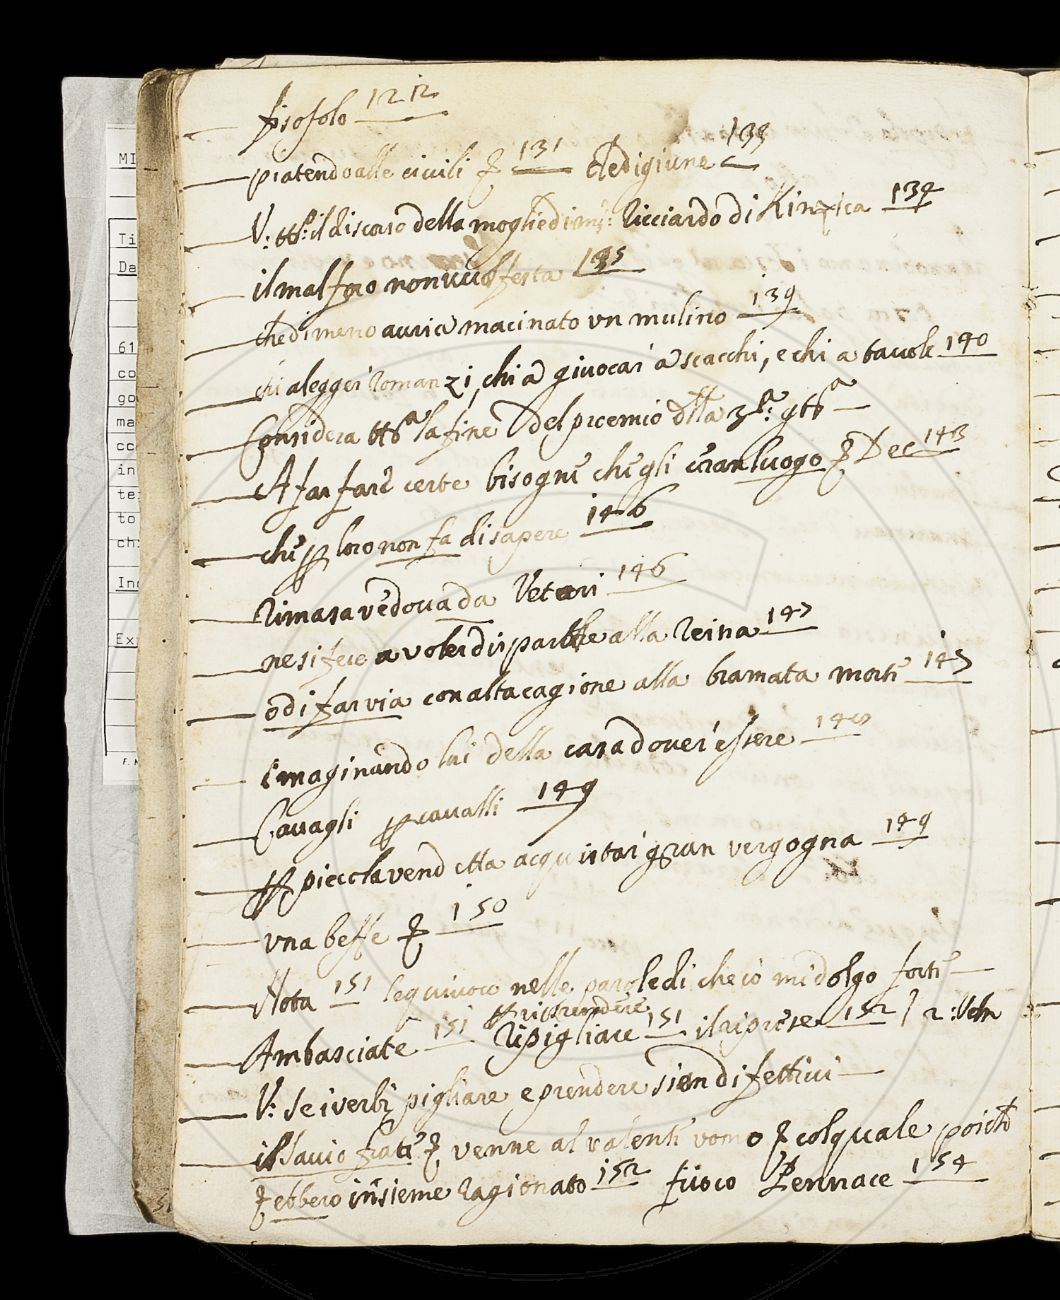 fisofolo 1212
piatendo alle civili & 131 che digiune 133
V: ttº: il discorso della moglie di mſ: Ricciardo di Kinzica 134
il malfoco non vuol festa 135
che di meno avria macinato un mulino 139
chi a legger romanzi, chi à giuocar à scacchi, e chi a tavole 140
Considera la fine del proemio dlla 3ª:
A far fare certe bisogne che gli eran luogo & Dec 143
che p loro non fa di sapere 146
Rimasa vedova da 146
ne si fece a voler dipartire alla Reina 147
o di far via con alta cagione alla bramata morte 147
imaginando lui della casa dover essere
Cavagli p cavalli 149
p picciola vendetta acquistar gran vergogna 149
una beffe & 150
Nota 151 lequivoco nelle parole di che io mi dolgo forte
p riprendere
Ambasciate 151 Ripigliare 151 il riprese 152 / 2:
V: Se i verbi pigliare e prendere sien difettivi
il savio frate & venne al valente uomo & col quale poiche
& ebbero insieme ragionato 152 fuoco Pennace 154
MI
Ti
Da
61
co
go
ma
cc
in
te
to
ch
In
Ex